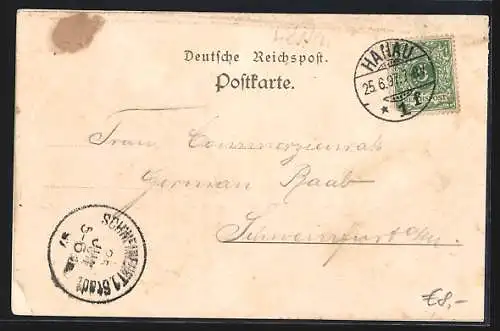 Deutsche Reichspost.
Postkarte.
HANAU
25.6.97
* 1 f
REICHSPOST
Frau Commerzienrat
German Raab
Schweinfurt a/M.
SCHWEINFURT 1. Stadt
25
JUN
5-6
97
€8,-